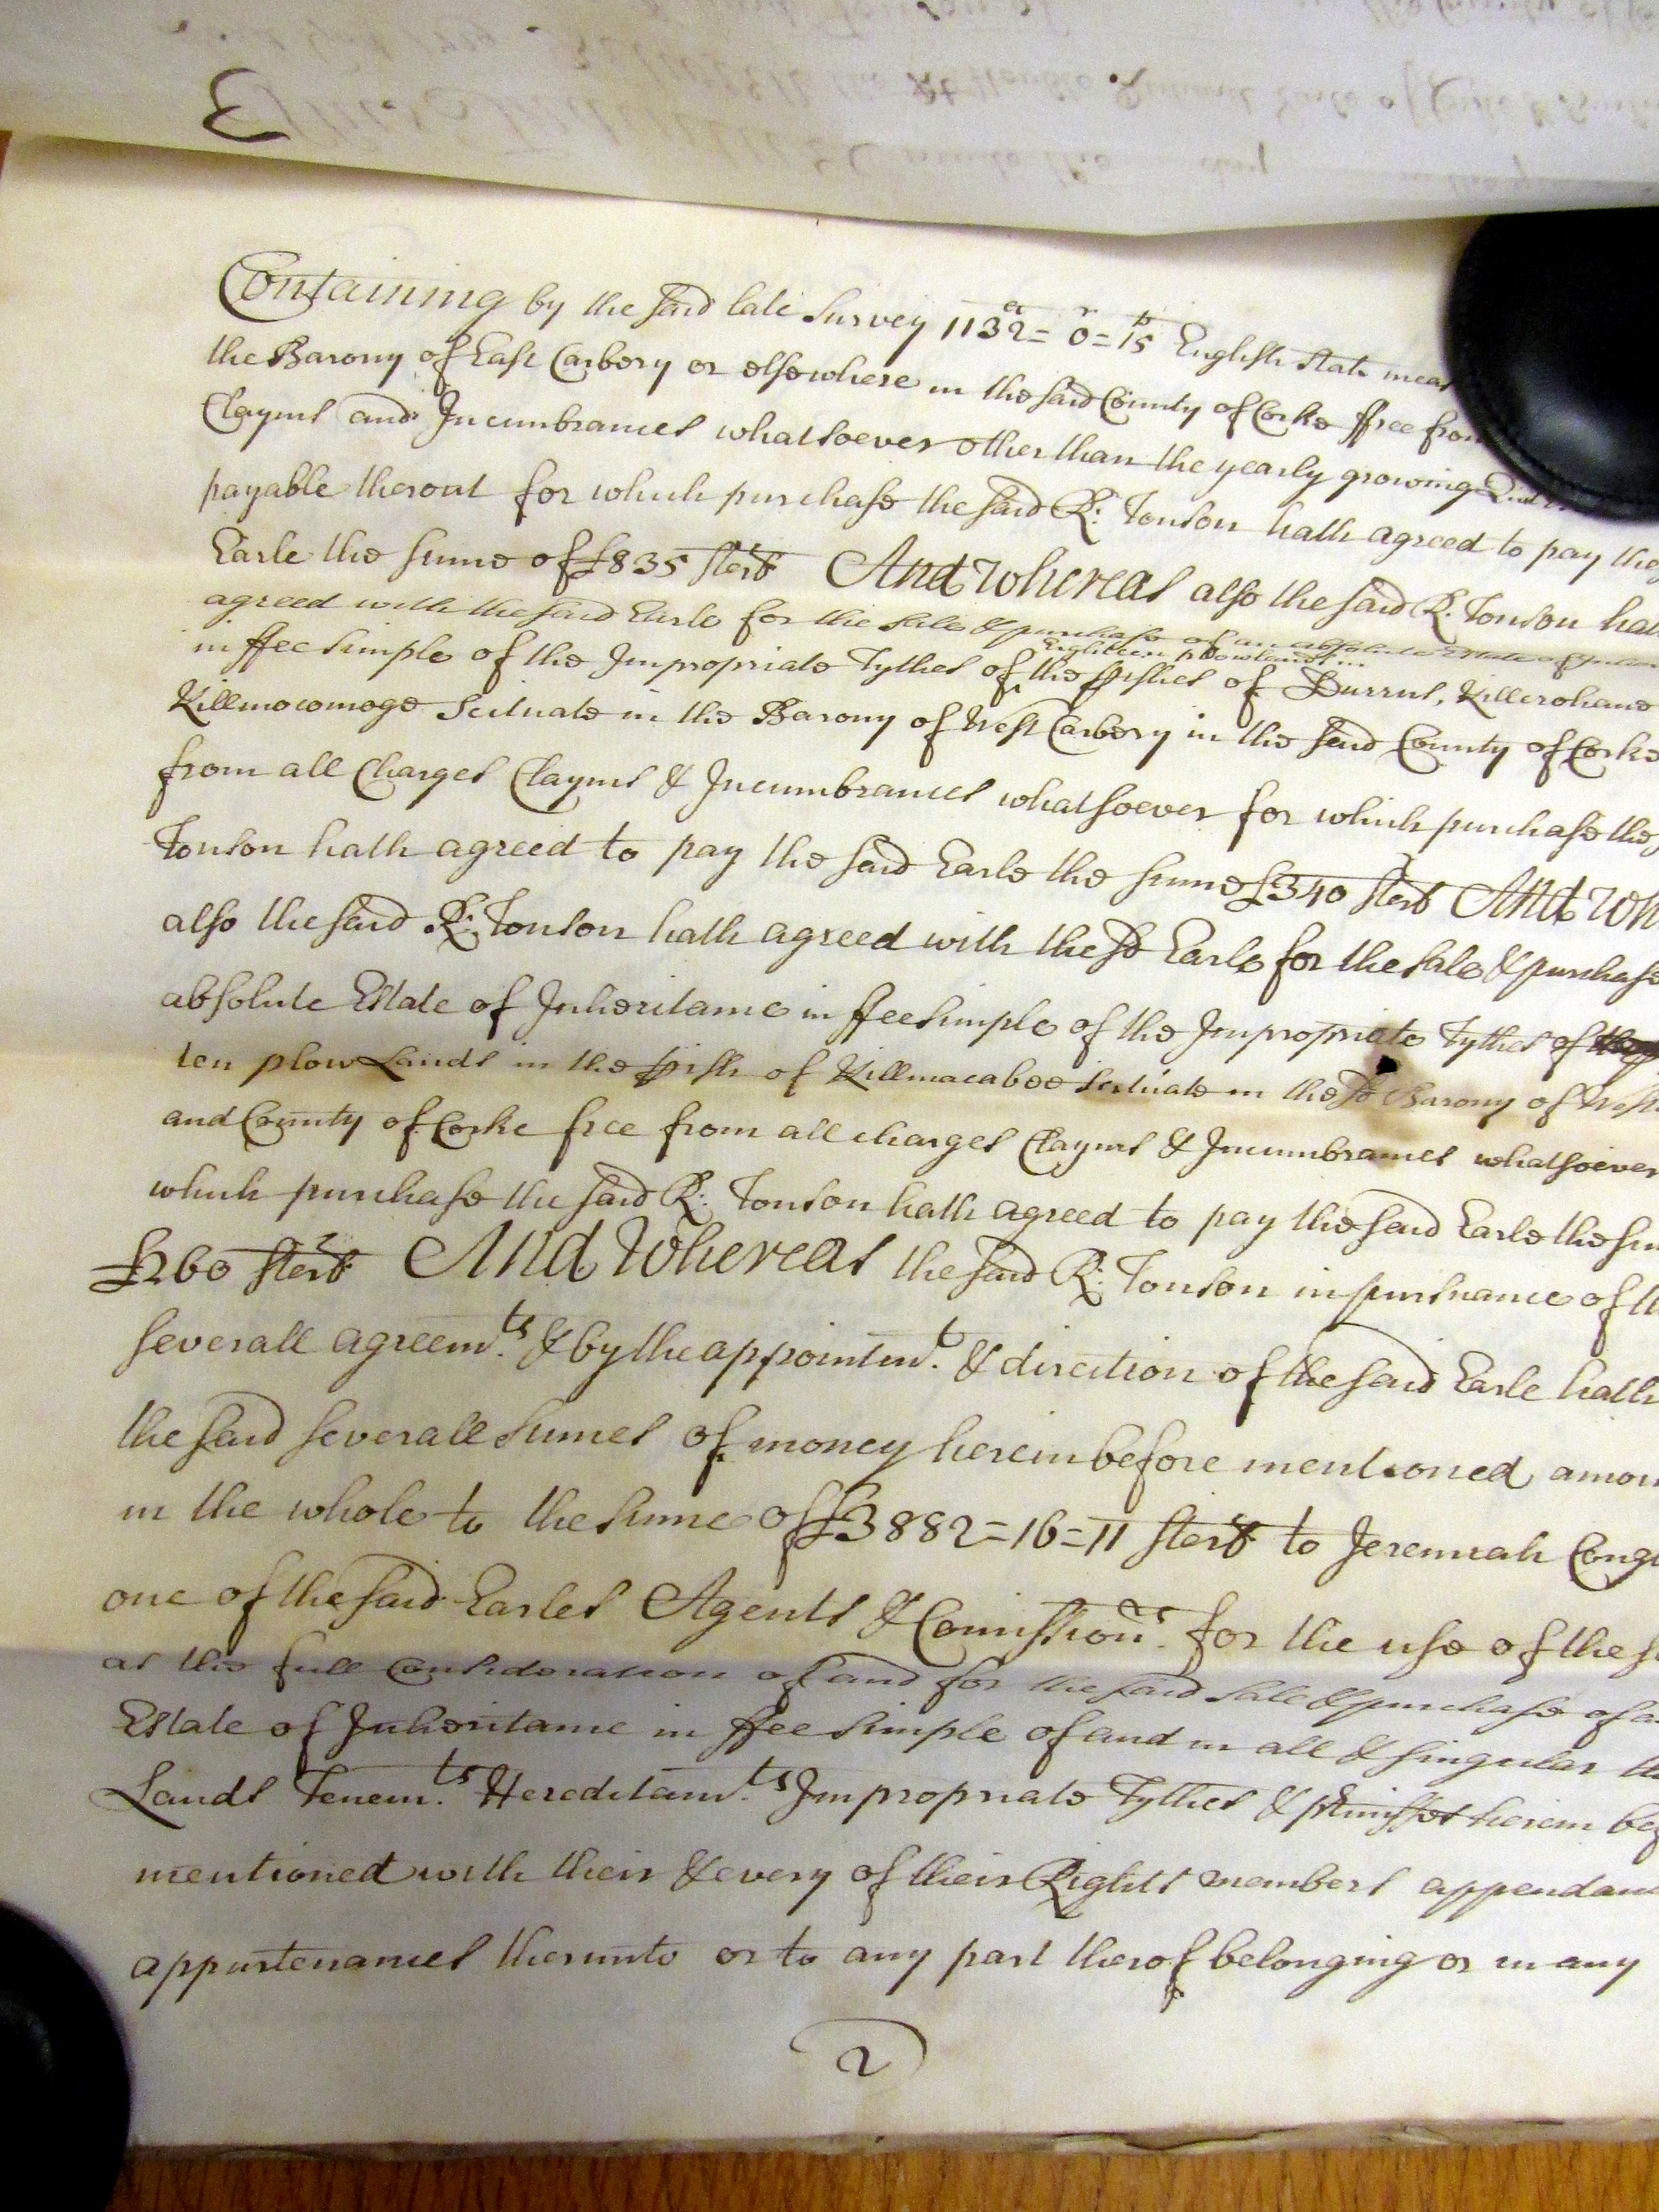 Containing by the said late Survey 1132ᵃ = 0ʳ = 15ᵖ English Statᵉ meas
the Barony of East Carbery or elsewhere in the said County of Corke ffree from
Clayms and Incumbrances whatsoever other than the yearly growing Quit
payable therout for which purchase the said R: Tonson hath agreed to pay the
Earle the sume of £835 sterˡ And Whereas also the said R: Tonson hath
agreed with the said Earle for the sale & purchase of an absolute Estate of Inher
Eighteen plowlands in
in ffee simple of the Impropriate Tythes of the pishes of Durrus, Killcrohane
Killmocomoge Scituate in the Barony of West Carbery in the said County of Corke
from all Charges Clayms & Incumbrances whatsoever for which purchase the
Tonson hath agreed to pay the said Earle the sume £340 sterˡ And Wh
also the said R: Tonson hath agreed with the sd Earle for the sale & purchase
absolute Estate of Inheritance in ffee simple of the Impropriate Tythes of
ten plow Lands in the pish of Killmacabee Scituate in the sd Barony of West
and County of Corke free from all charges Clayms & Incumbrances whatsoever
which purchase the said R: Tonson hath agreed to pay the said Earle the sum
£260 sterˡ And Whereas the said R: Tonson in pursuance of th
severall agreem.ᵗˢ & by the appointm.ᵗ & direction of the said Earle hath
the said severall sumes of money herein before mentioned amou
in the whole to the sume of £3882=16=11 sterˡ to Jeremiah Cong
one of the said Earles Agents & Comission.ʳˢ for the use of the s
as the full Consideration of and for the said sale & purchase of a
Estate of Inheritance in ffee simple of and in all & singular th
Lands Tenem.ᵗˢ Hereditam.ᵗˢ Impropriate Tythes & pmisses herein bef
mentioned with their & every of their Rights members appendan
appurtenances therunto or to any part therof belonging or in any
2